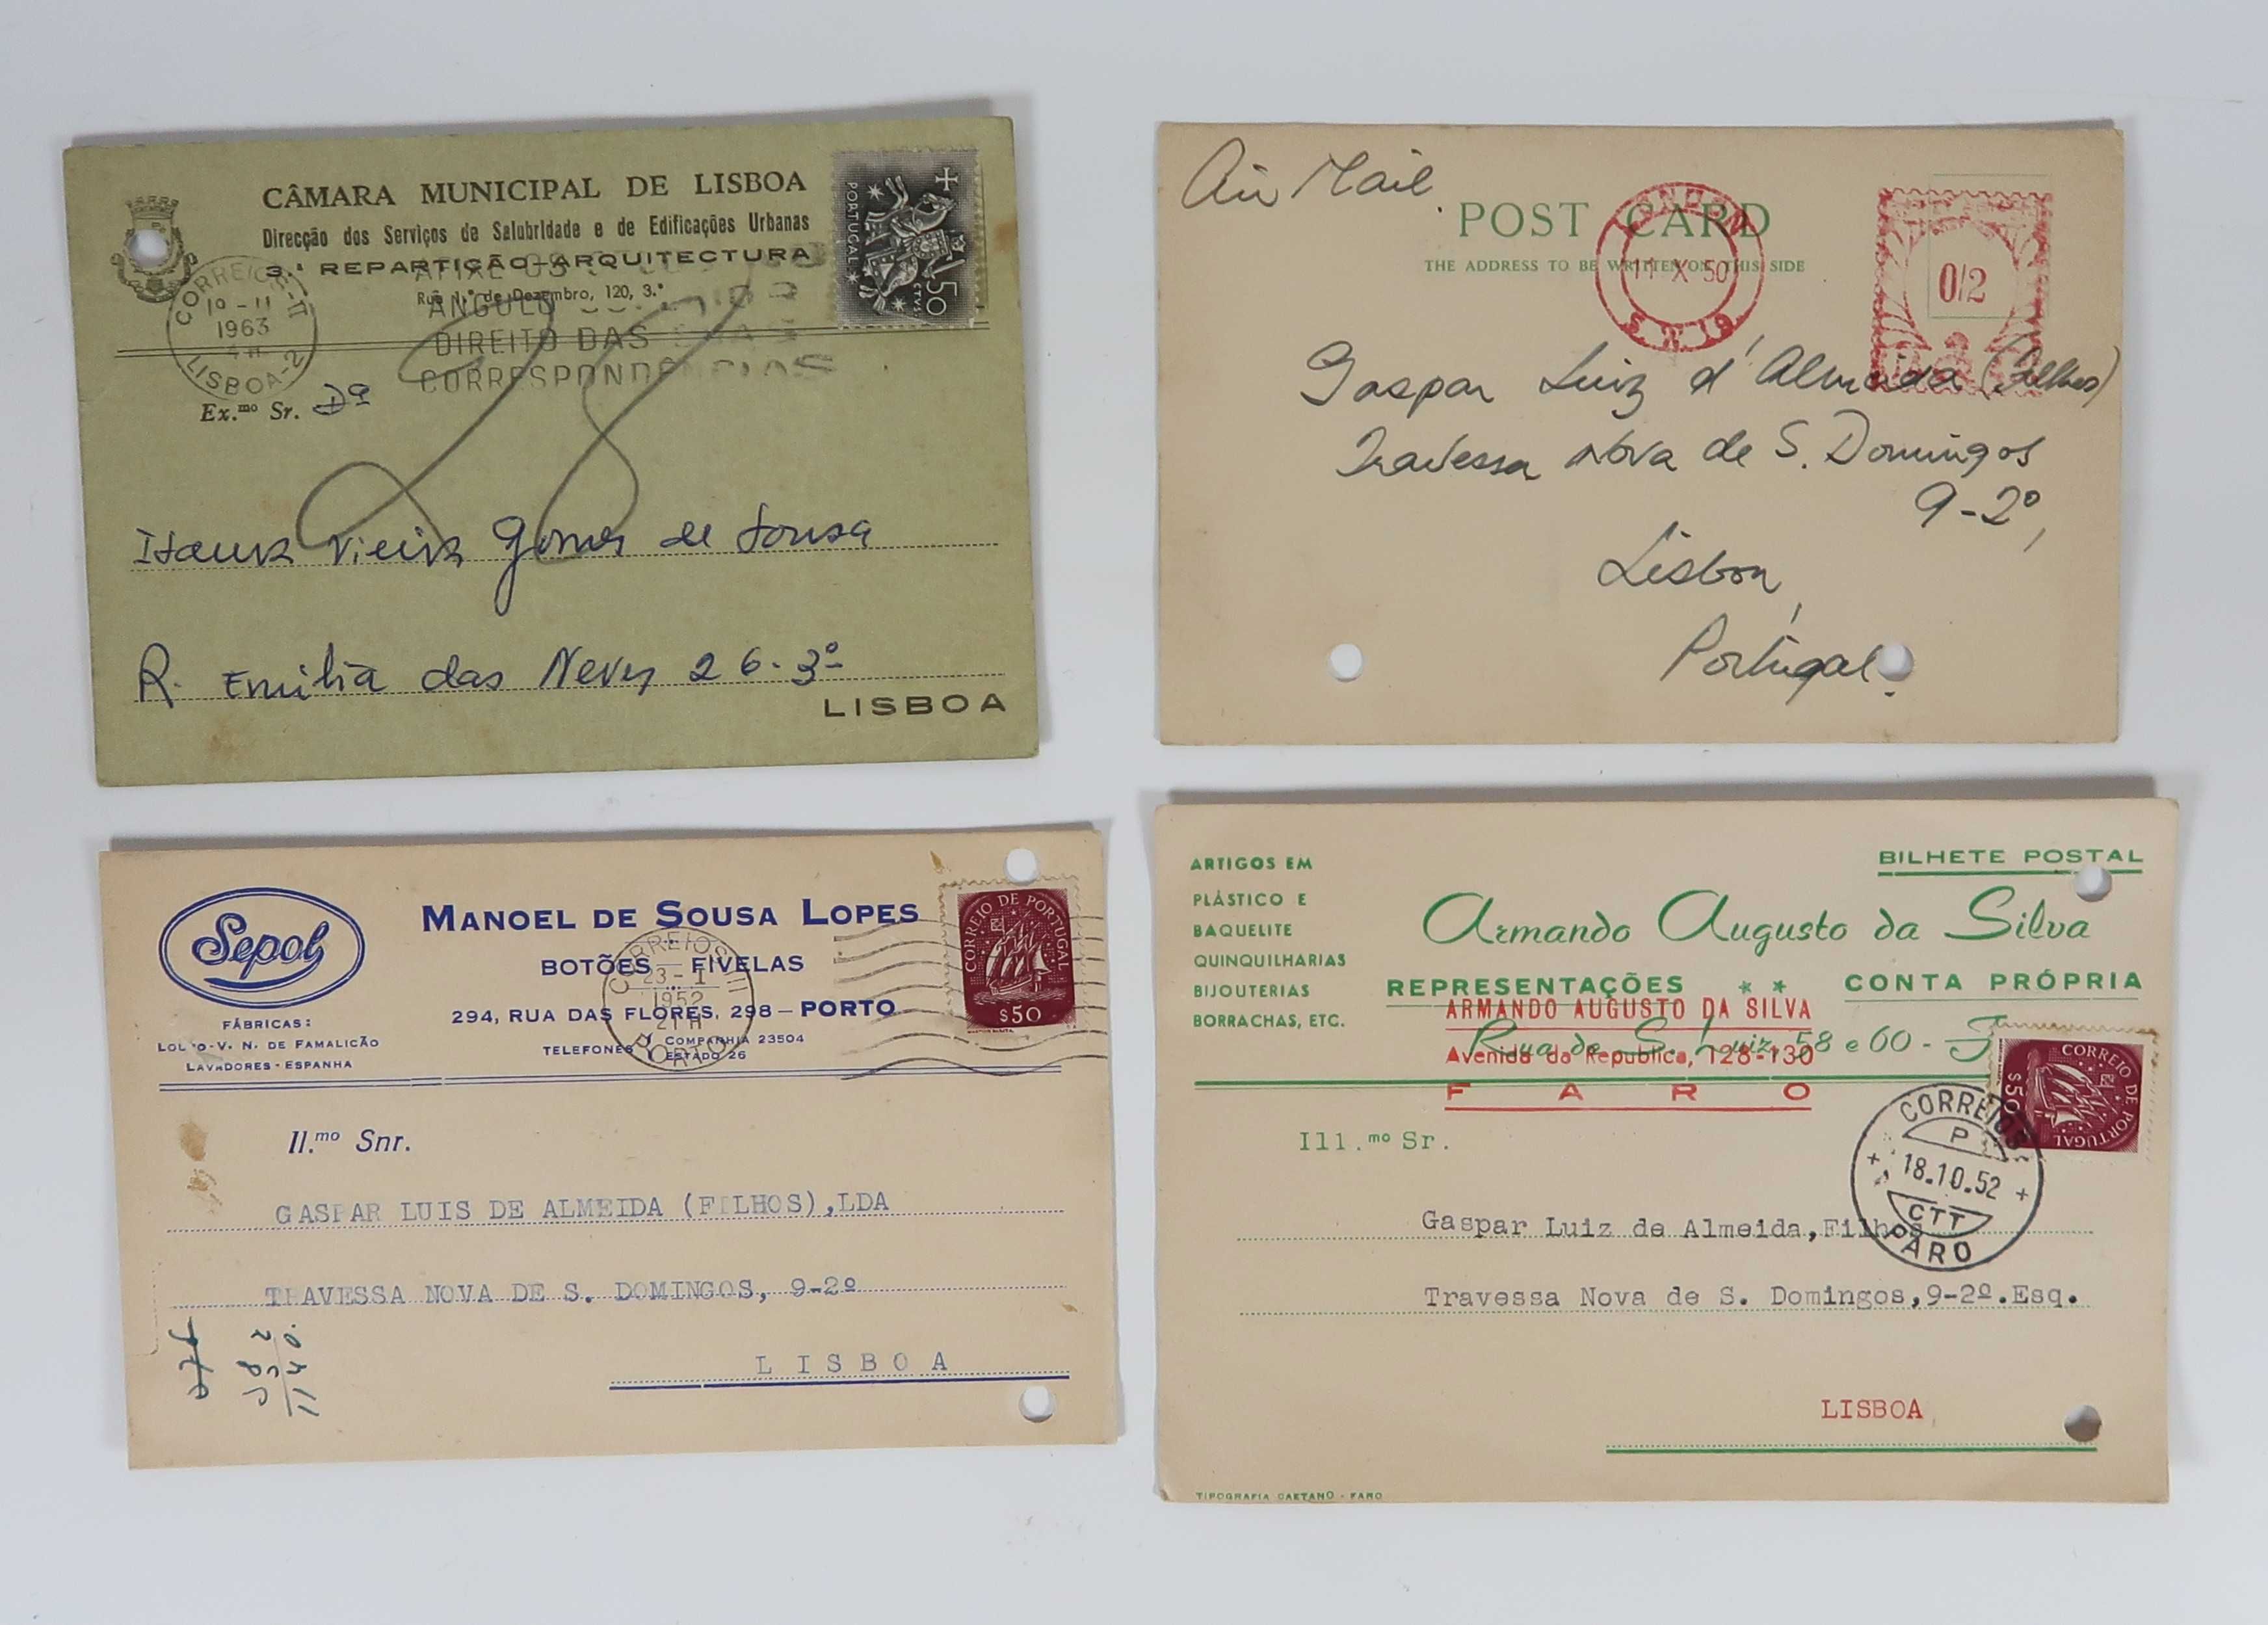 CÂMARA MUNICIPAL DE LISBOA
Direcção dos Serviços de Salubridade e de Edificações Urbanas
3.ª REPARTIÇÃO-ARQUITECTURA
Rua 1.º de Dezembro, 120, 3.º
PORTUGAL
50
CTVS
CORREIOS
10-11
1963
LISBOA-2
ANGULO
DIREITO DAS
CORRESPONDÊNCIAS
Ex.mo Sr. Dª
Vieira Gomes de Sousa
R. Emilia das Neves 26-3º
LISBOA
Air Mail.
POST CARD
THE ADDRESS TO BE WRITTEN ON THIS SIDE
LONDON
11 X 50
0/2
Gaspar Luiz d'Almeida (Filhos)
Travessa Nova de S. Domingos
9-2º,
Lisbon,
Portugal.
Sepol
FÁBRICAS:
V. N. DE FAMALICÃO
LAVADORES-ESPANHA
MANOEL DE SOUSA LOPES
BOTÕES — FIVELAS
294, RUA DAS FLORES, 298 — PORTO
TELEFONES COMPANHIA 23504
ESTADO 26
CORREIOS
23-I
1952
21 H
PORTO
CORREIO DE PORTUGAL
$50
Il.mo Snr.
GASPAR LUIS DE ALMEIDA (FILHOS),LDA
TRAVESSA NOVA DE S. DOMINGOS, 9-2º
LISBOA
ARTIGOS EM
PLÁSTICO E
BAQUELITE
QUINQUILHARIAS
BIJOUTERIAS
BORRACHAS, ETC.
BILHETE POSTAL
Armando Augusto da Silva
REPRESENTAÇÕES ** CONTA PRÓPRIA
ARMANDO AUGUSTO DA SILVA
Rua de S. Luiz, 58 e 60 -
Avenida da Republica, 128-130
FARO
CORREIO DE PORTUGAL
$50
CORREIOS
P
18.10.52
CTT
FARO
Ill.mo Sr.
Gaspar Luiz de Almeida,Filhos
Travessa Nova de S. Domingos,9-2º.Esq.
LISBOA
TIPOGRAFIA CAETANO - FARO